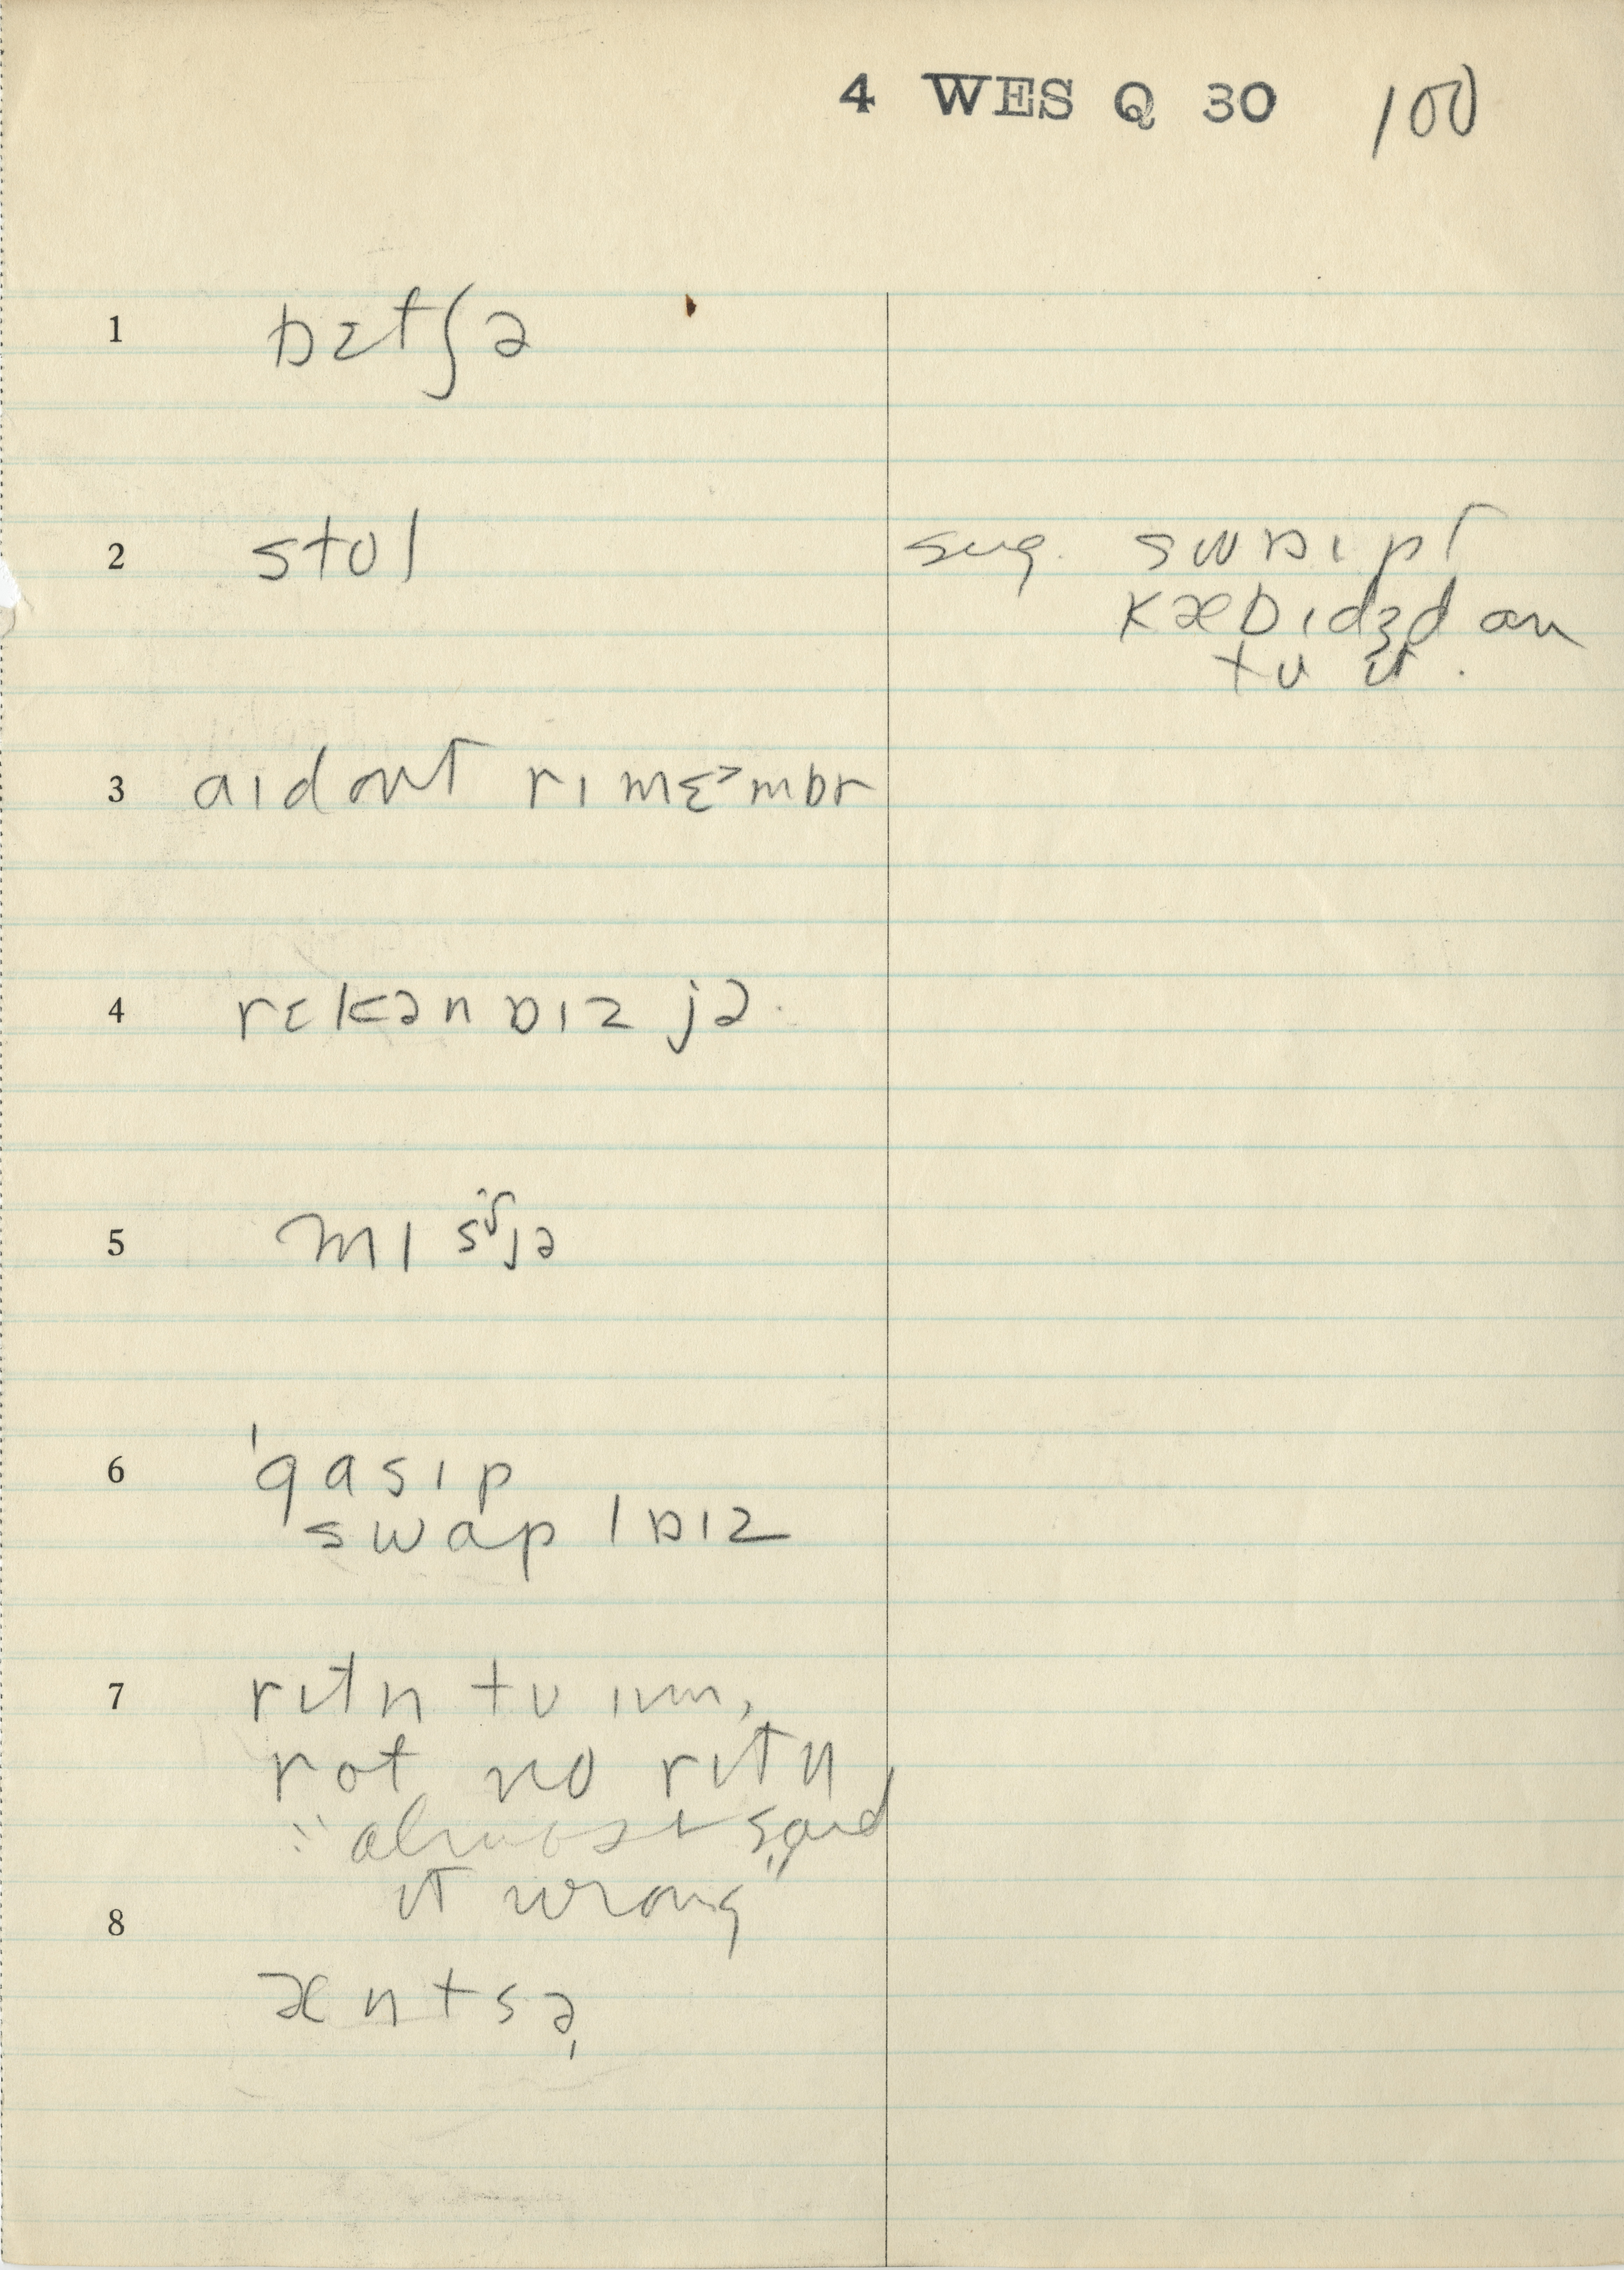 4 WES Q 30 100
1 bɛtʃə
2 stol
sug. swɒipt
kæbɪdʒd on
tu it.
3 aɪdont rɪmɛ˃mbr
4 rɛkənɒɪz jə
5 mɪ jə
6 'gasɪp
swap lɒɪz
7 rɪtn tu ɪm,
rot no rɪtn
"almost said
it wrong"
8
æntsə